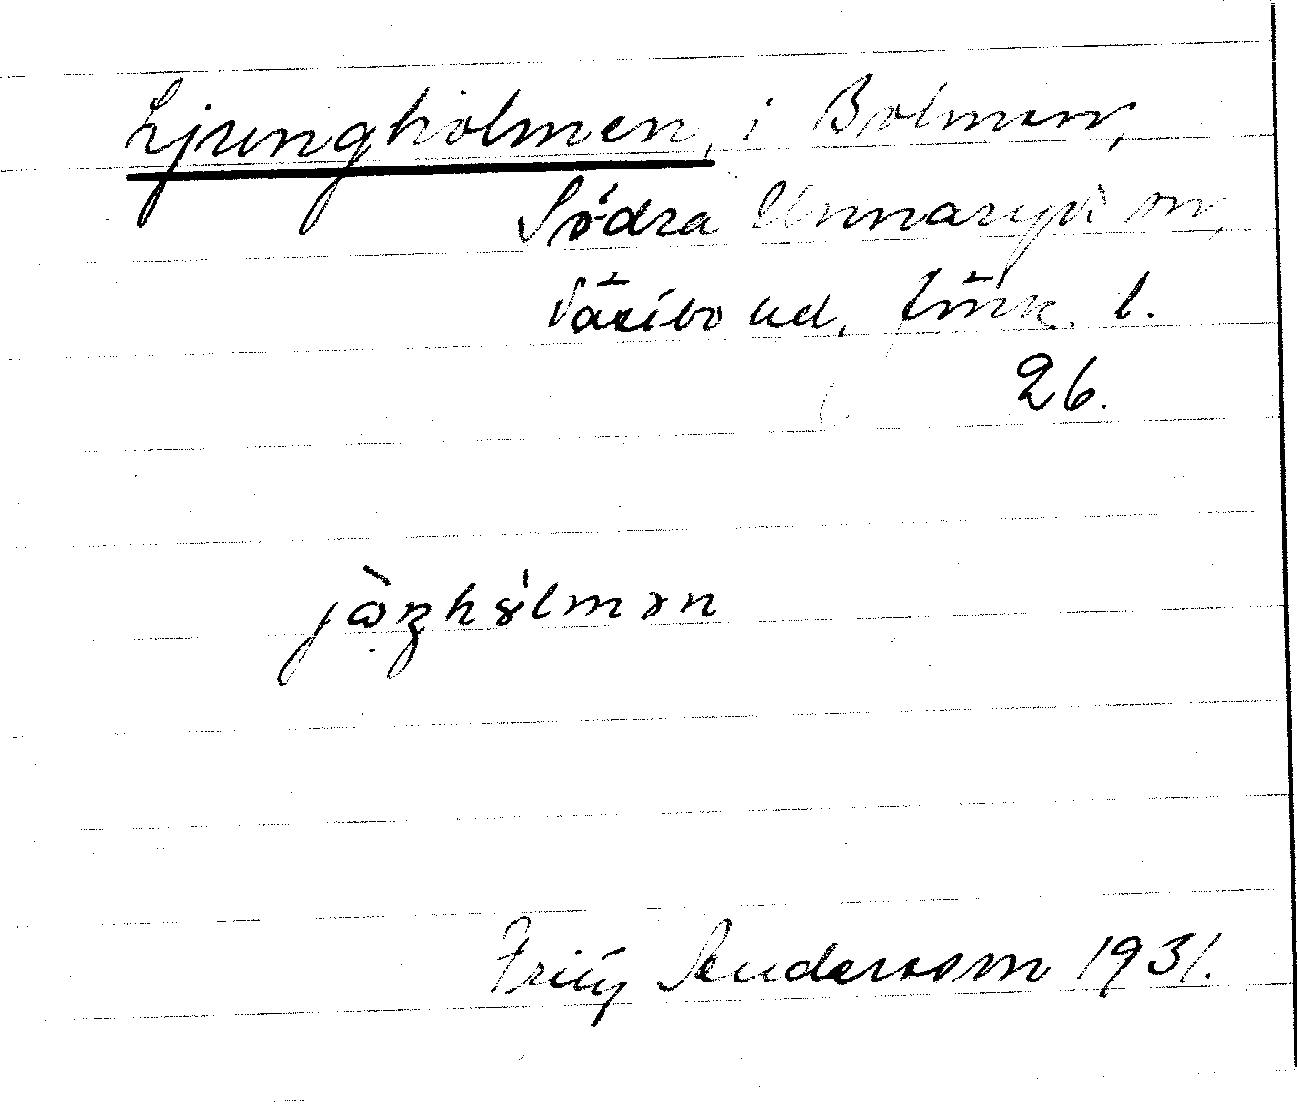 Ljungholmen, i Bolmen,
Södra Unnaryds sn,
Västbo hd, Jönk. l.
26.
Fritz Andersson 1931.